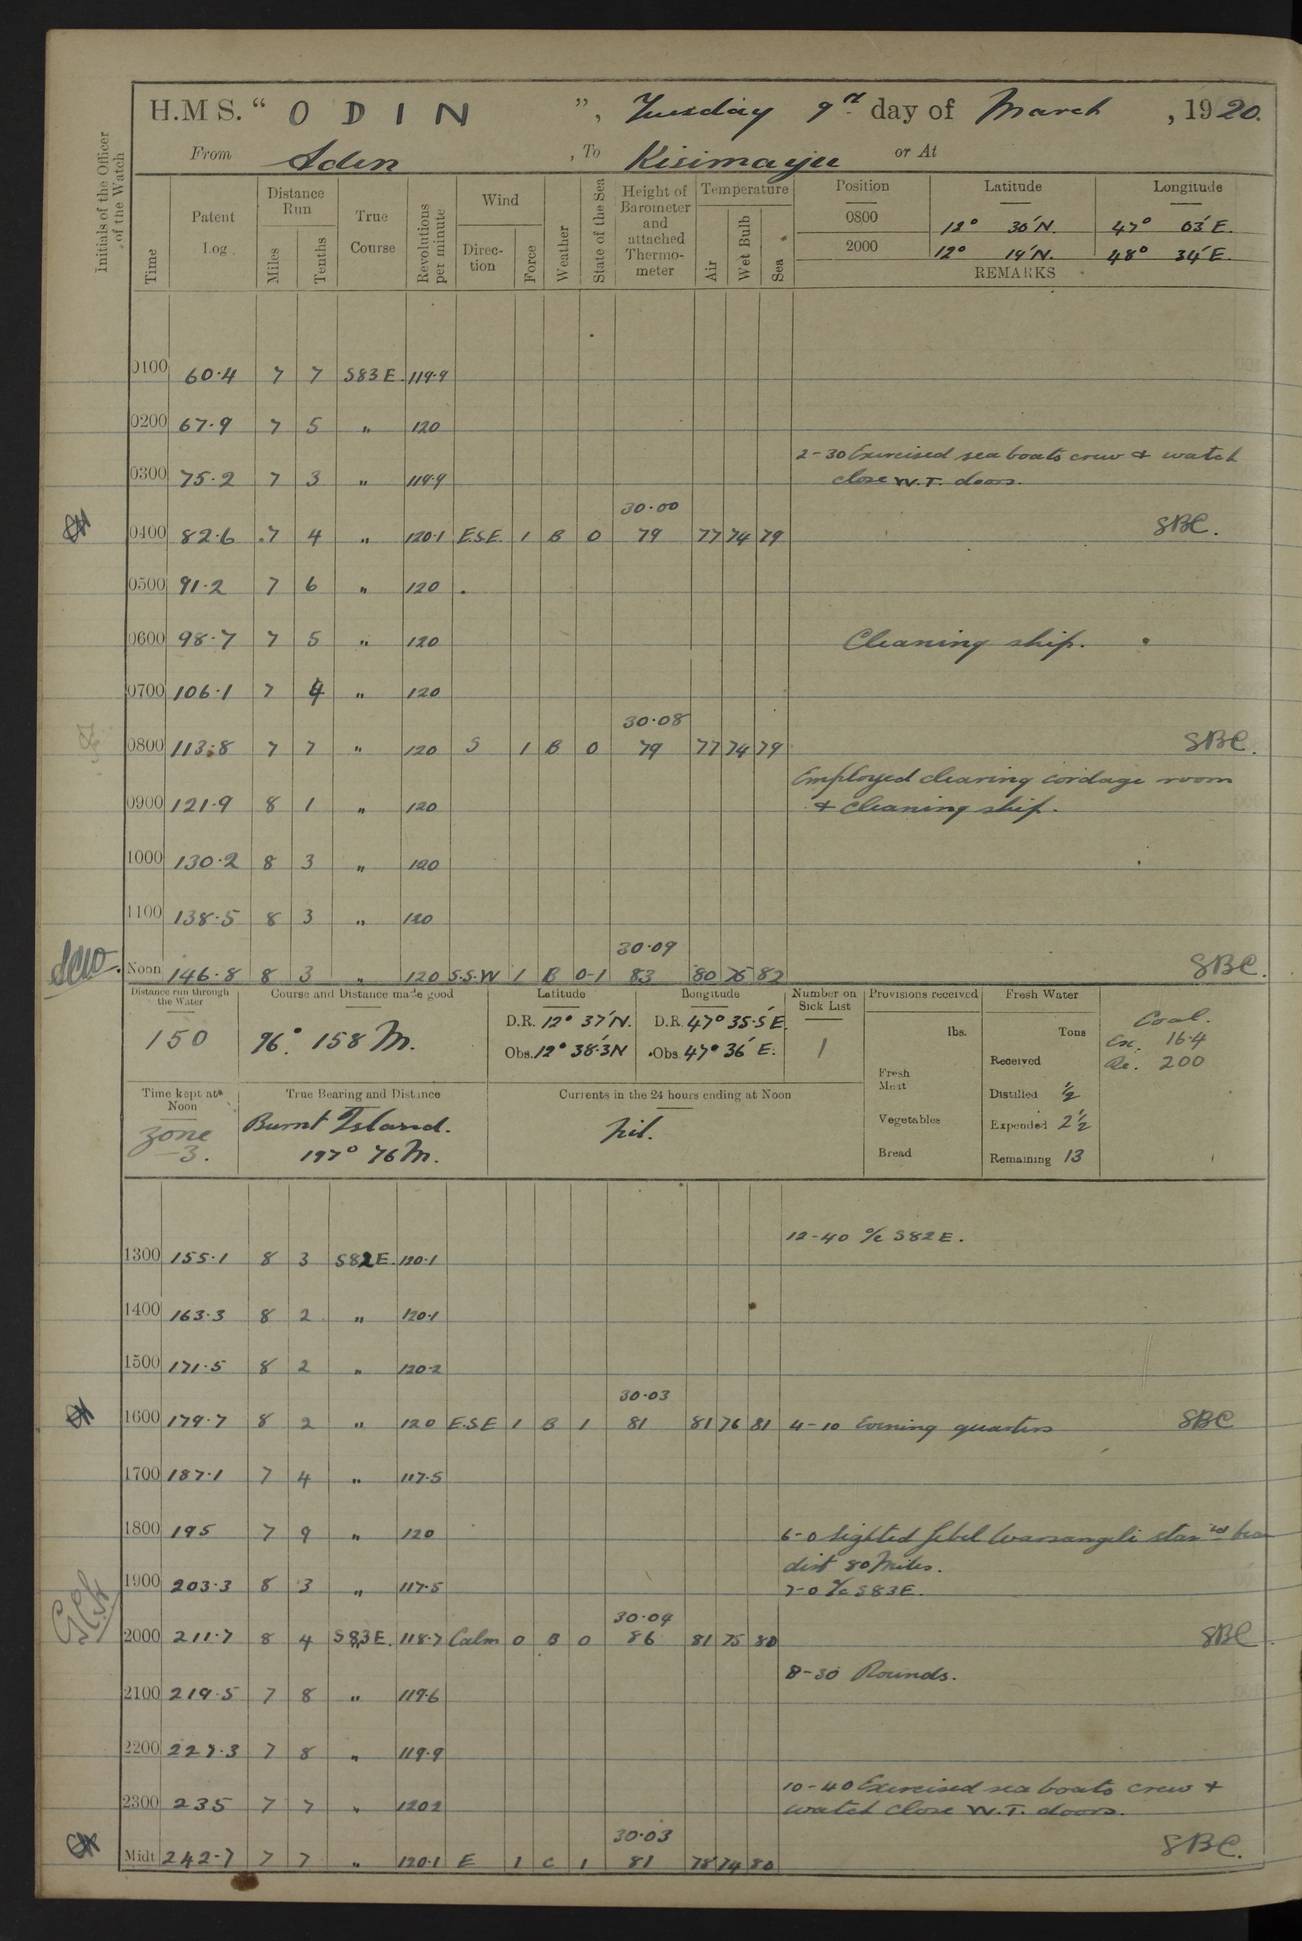 H.M S. “ ODIN ”, Tuesday 9th day of March , 1920.
From Aden , To Kisimayu or At
Initials of the Officer of the Watch
Time
Patent Log
Distance Run
Miles
Tenths
True Course
Revolutions per minute
Wind
Direction
Force
Weather
State of the Sea
Height of Barometer and attached Thermometer
Temperature
Air
Wet Bulb
Sea
Position Latitude Longitude
0800 12° 30′ N. 47° 03′ E.
2000 12° 14′ N. 48° 34′ E.
REMARKS
0100 60.4 7 7 S83E. 119.9
0200 67.9 7 5 " 120
2-30 Exercised sea boats crew & watch
0300 75.2 7 3 " 119.9 close W.T. doors.
30.00
0400 82.6 7 4 " 120.1 E.S.E. 1 B 0 79 77 74 79 SBC.
0500 91.2 7 6 " 120
0600 98.7 7 5 " 120 Cleaning ship.
0700 106.1 7 4 " 120
30.08
0800 113.8 7 7 " 120 S 1 B 0 79 77 74 79 SBC.
Employed clearing cordage room
0900 121.9 8 1 " 120 & cleaning ship.
1000 130.2 8 3 " 120
1100 138.5 8 3 " 120
30.09
Noon 146.8 8 3 " 120 S.S.W 1 B 0-1 83 80 75 82 SBC.
Distance run through the Water
150
Course and Distance made good
96° 158 M.
Latitude
D.R. 12° 37′ N.
Obs. 12° 38.3′ N
Longitude
D.R. 47° 35.5′ E.
Obs. 47° 36′ E.
Number on Sick List
1
Provisions received
lbs.
Fresh Meat
Vegetables
Bread
Fresh Water
Tons
Received
Distilled ½
Expended 2½
Remaining 13
Coal.
Ex. 16.4
Re. 200
Time kept at Noon
Zone -3.
True Bearing and Distance
Burnt Island.
197° 76 M.
Currents in the 24 hours ending at Noon
Nil.
12-40 a/c S82E.
1300 155.1 8 3 S82E. 120.1
1400 163.3 8 2 " 120.1
1500 171.5 8 2 " 120.2
30.03
1600 179.7 8 2 " 120 E.S.E 1 B 1 81 81 76 81 4-10 Evening quarters SBC
1700 187.1 7 4 " 117.5
1800 195 7 9 " 120 6-0 Sighted Jebel Warsangeli star'd beam
dist 80 Miles.
1900 203.3 8 3 " 117.5 7-0 a/c S83E.
30.04
2000 211.7 8 4 S83E. 118.7 Calm 0 B 0 86 81 75 80 SBC.
8-30 Rounds.
2100 219.5 7 8 " 119.6
2200 227.3 7 8 " 119.9
10-40 Exercised sea boats crew &
2300 235 7 7 " 120.2 watch close W.T. doors.
30.03
Midt 242.7 7 7 " 120.1 E 1 C 1 81 78 74 80 SBC.